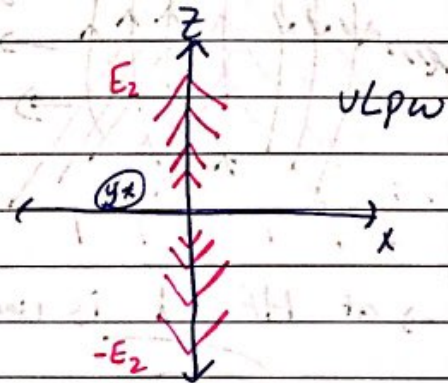 Z
E₂
VLPW
yx
X
-E₂